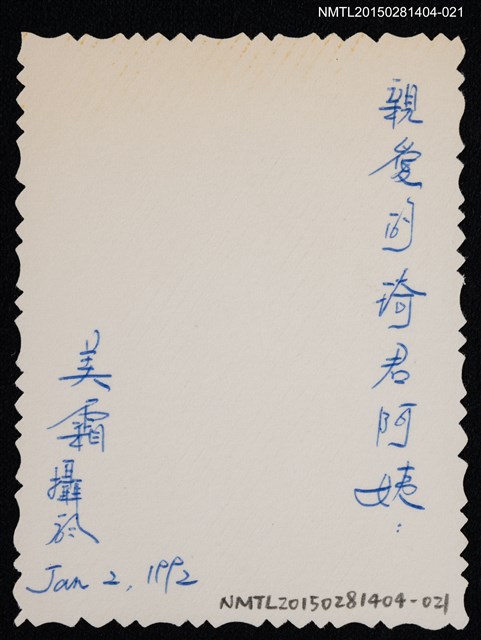 NMTL20150281404-021
親愛的琦君阿姨：
美霜攝於
Jan 2, 1992
NMTL20150281404-021